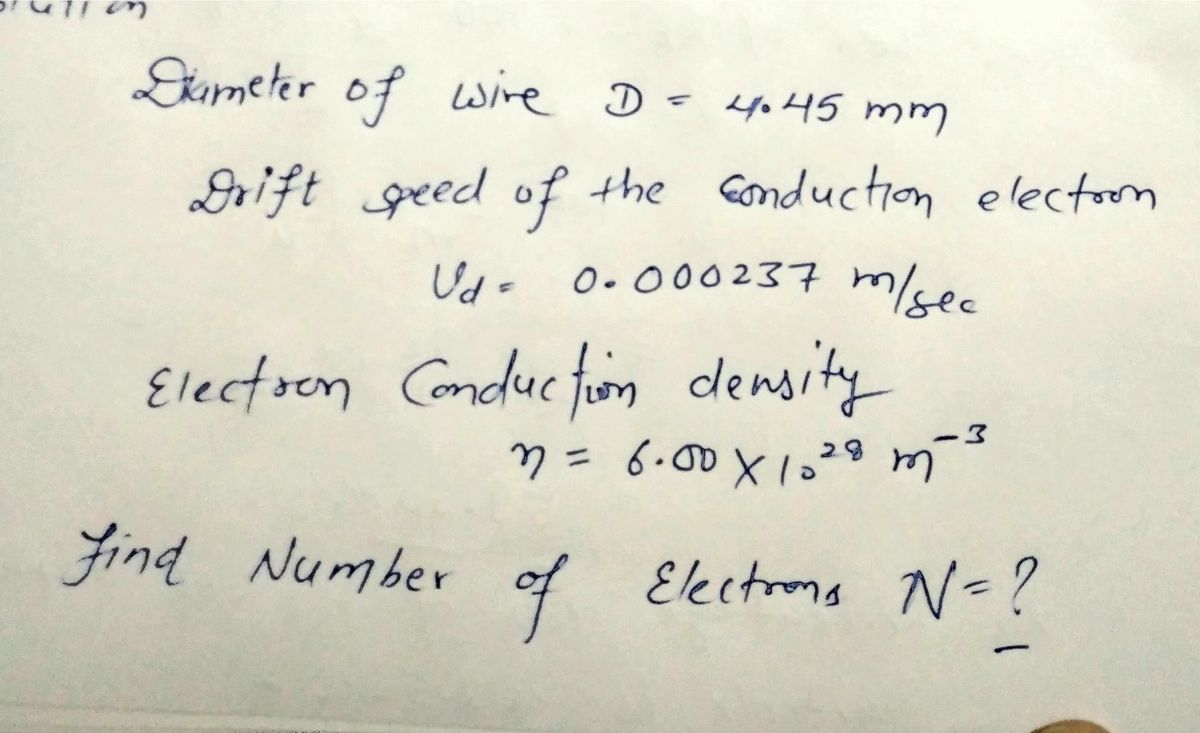 Diameter of wire D = 4.45 mm
Drift speed of the conduction electron
Vd = 0.000237 m/sec
Electron Conduction density
η = 6.00 × 10²⁸ m⁻³
find Number of Electrons N=?